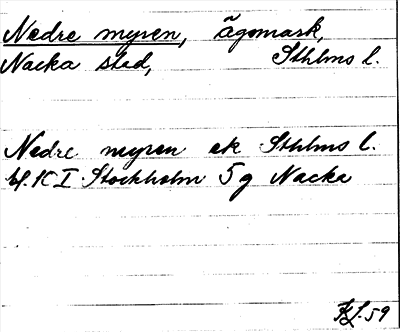 Nedre myren, ägomark,
Nacka stad, Sthlms l.
Nedre myren ek Sthlms l.
bl. K I Stockholm 5 g Nacka
59